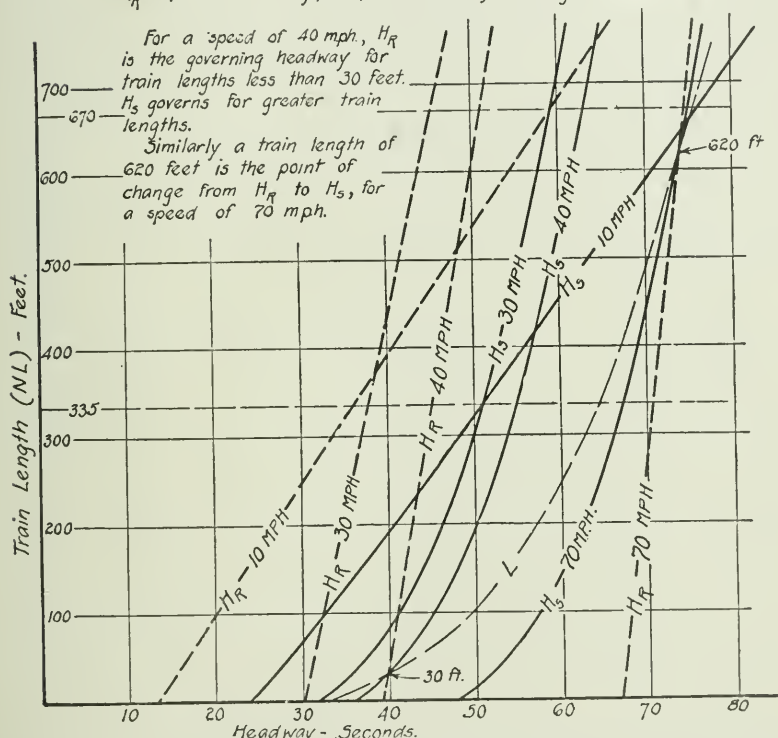 For a speed of 40 mph., HR
is the governing headway for
train lengths less than 30 feet.
Hs governs for greater train
lengths.
Similarly a train length of
620 feet is the point of
change from HR to Hs, for
a speed of 70 mph.
700
670
600
500
400
335
300
200
100
Train Length (NL) - Feet.
HR 10 MPH
HR 30 MPH
HR 40 MPH
Hs-30 MPH
Hs 40 MPH
Hs 10 MPH
L
Hs 70 MPH.
HR 70 MPH
620 ft
30 ft.
10
20
30
40
50
60
70
80
Headway - Seconds.